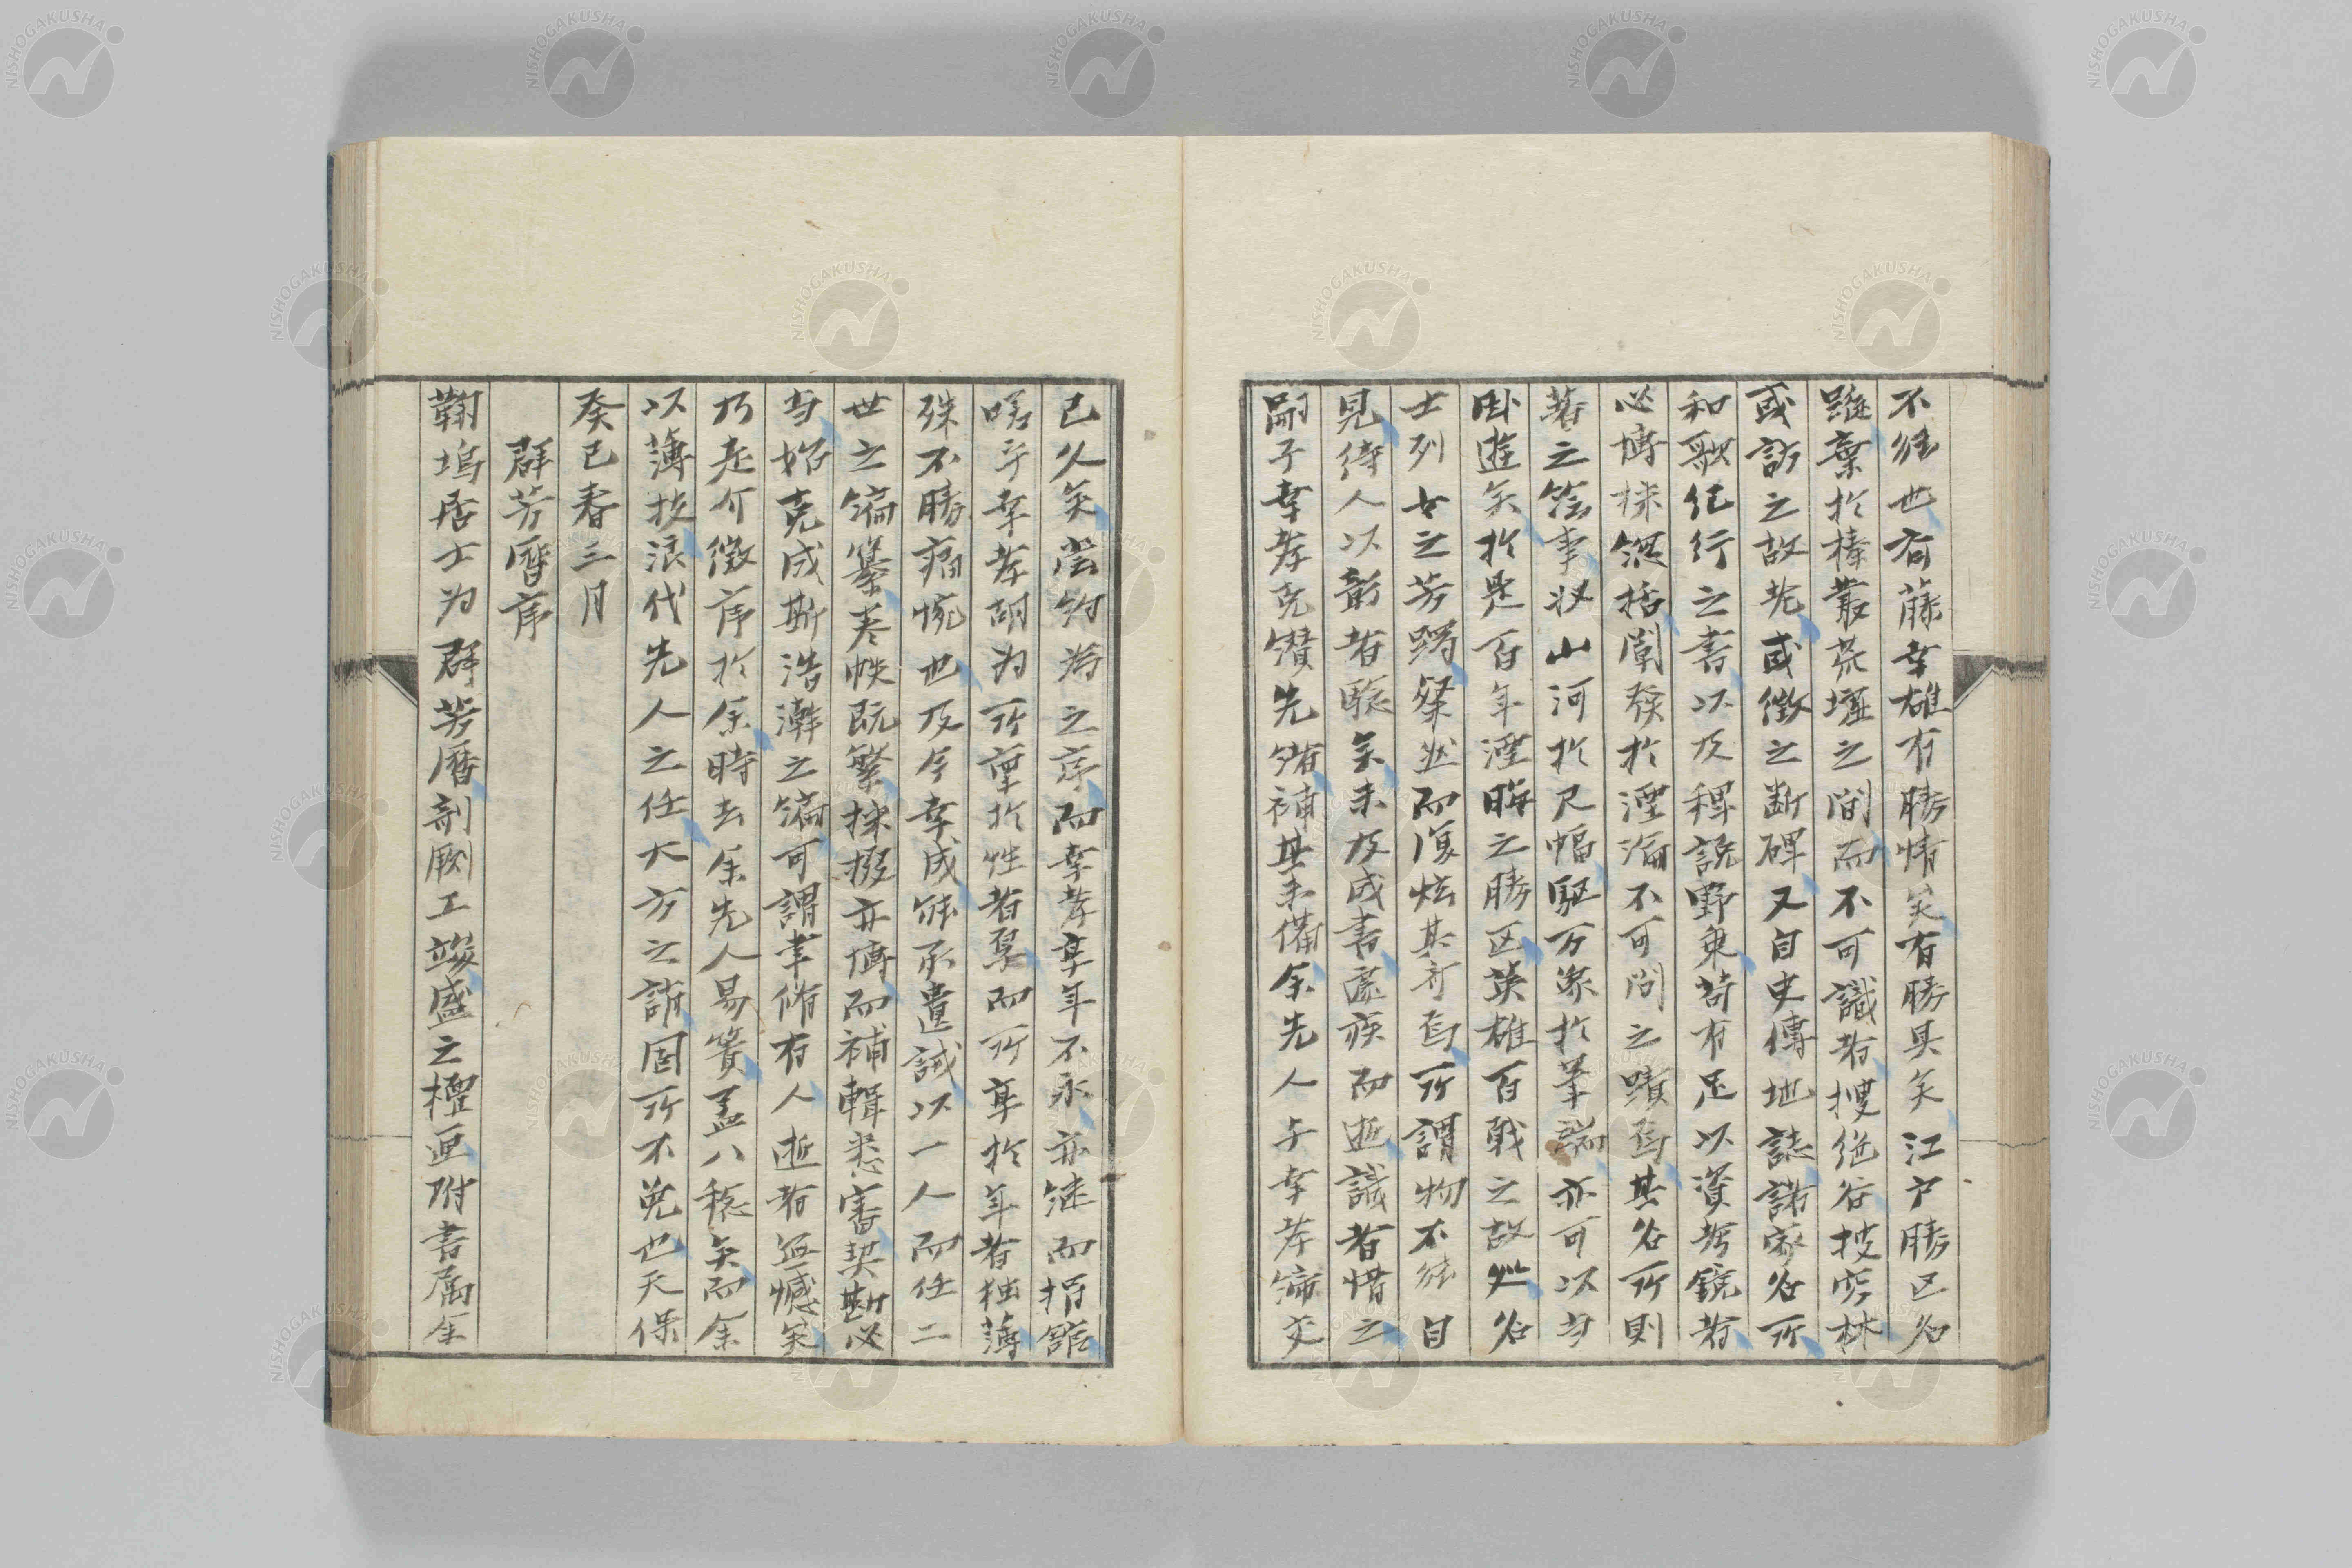 不能也斎藤幸雄有勝情矣有勝具矣江戸勝区名
蹤棄於榛叢荒壚之間而不可識者捜絶谷披窮林
或訪之故老或徴之断碑又自史傳地誌諸家名所
和歌紀行之書以及稗説野乗苟有足以資考鏡者
必博採綜括闡発於湮淪不可問之蹟焉其名所則
著之策事状山河於尺幅駆万象於筆端亦可以当
臥遊矣於是百年湮晦之勝区英雄百戦之故墟名
士列女之芳躅粲然而復炫其所焉所謂物不能自
見待人以彰者験矣未及成書遽疾而逝識者惜之
嗣子幸孝克纉先緒補其未備余先人与幸孝締交
已久矣嘗約為之序而幸孝享年不永亦継而捐館
嗟乎幸孝胡為所稟於性者厚而所享於年者独薄
殊不勝痛惋也及今幸成能承遺誡以一人而任二
世之編纂巻帙既繁採掇亦博而補輯悉審契勘必
当始克成斯浩澣之編可謂聿脩有人逝者無憾矣
乃走介徴序於余時去余先人易簀盖八稔矣而余
以薄技浪代先人之任大方之訴固所不免也天保
癸巳春三月
群芳暦序
鞠塢居士為群芳暦剞劂工竣盛之櫃匣附書属余